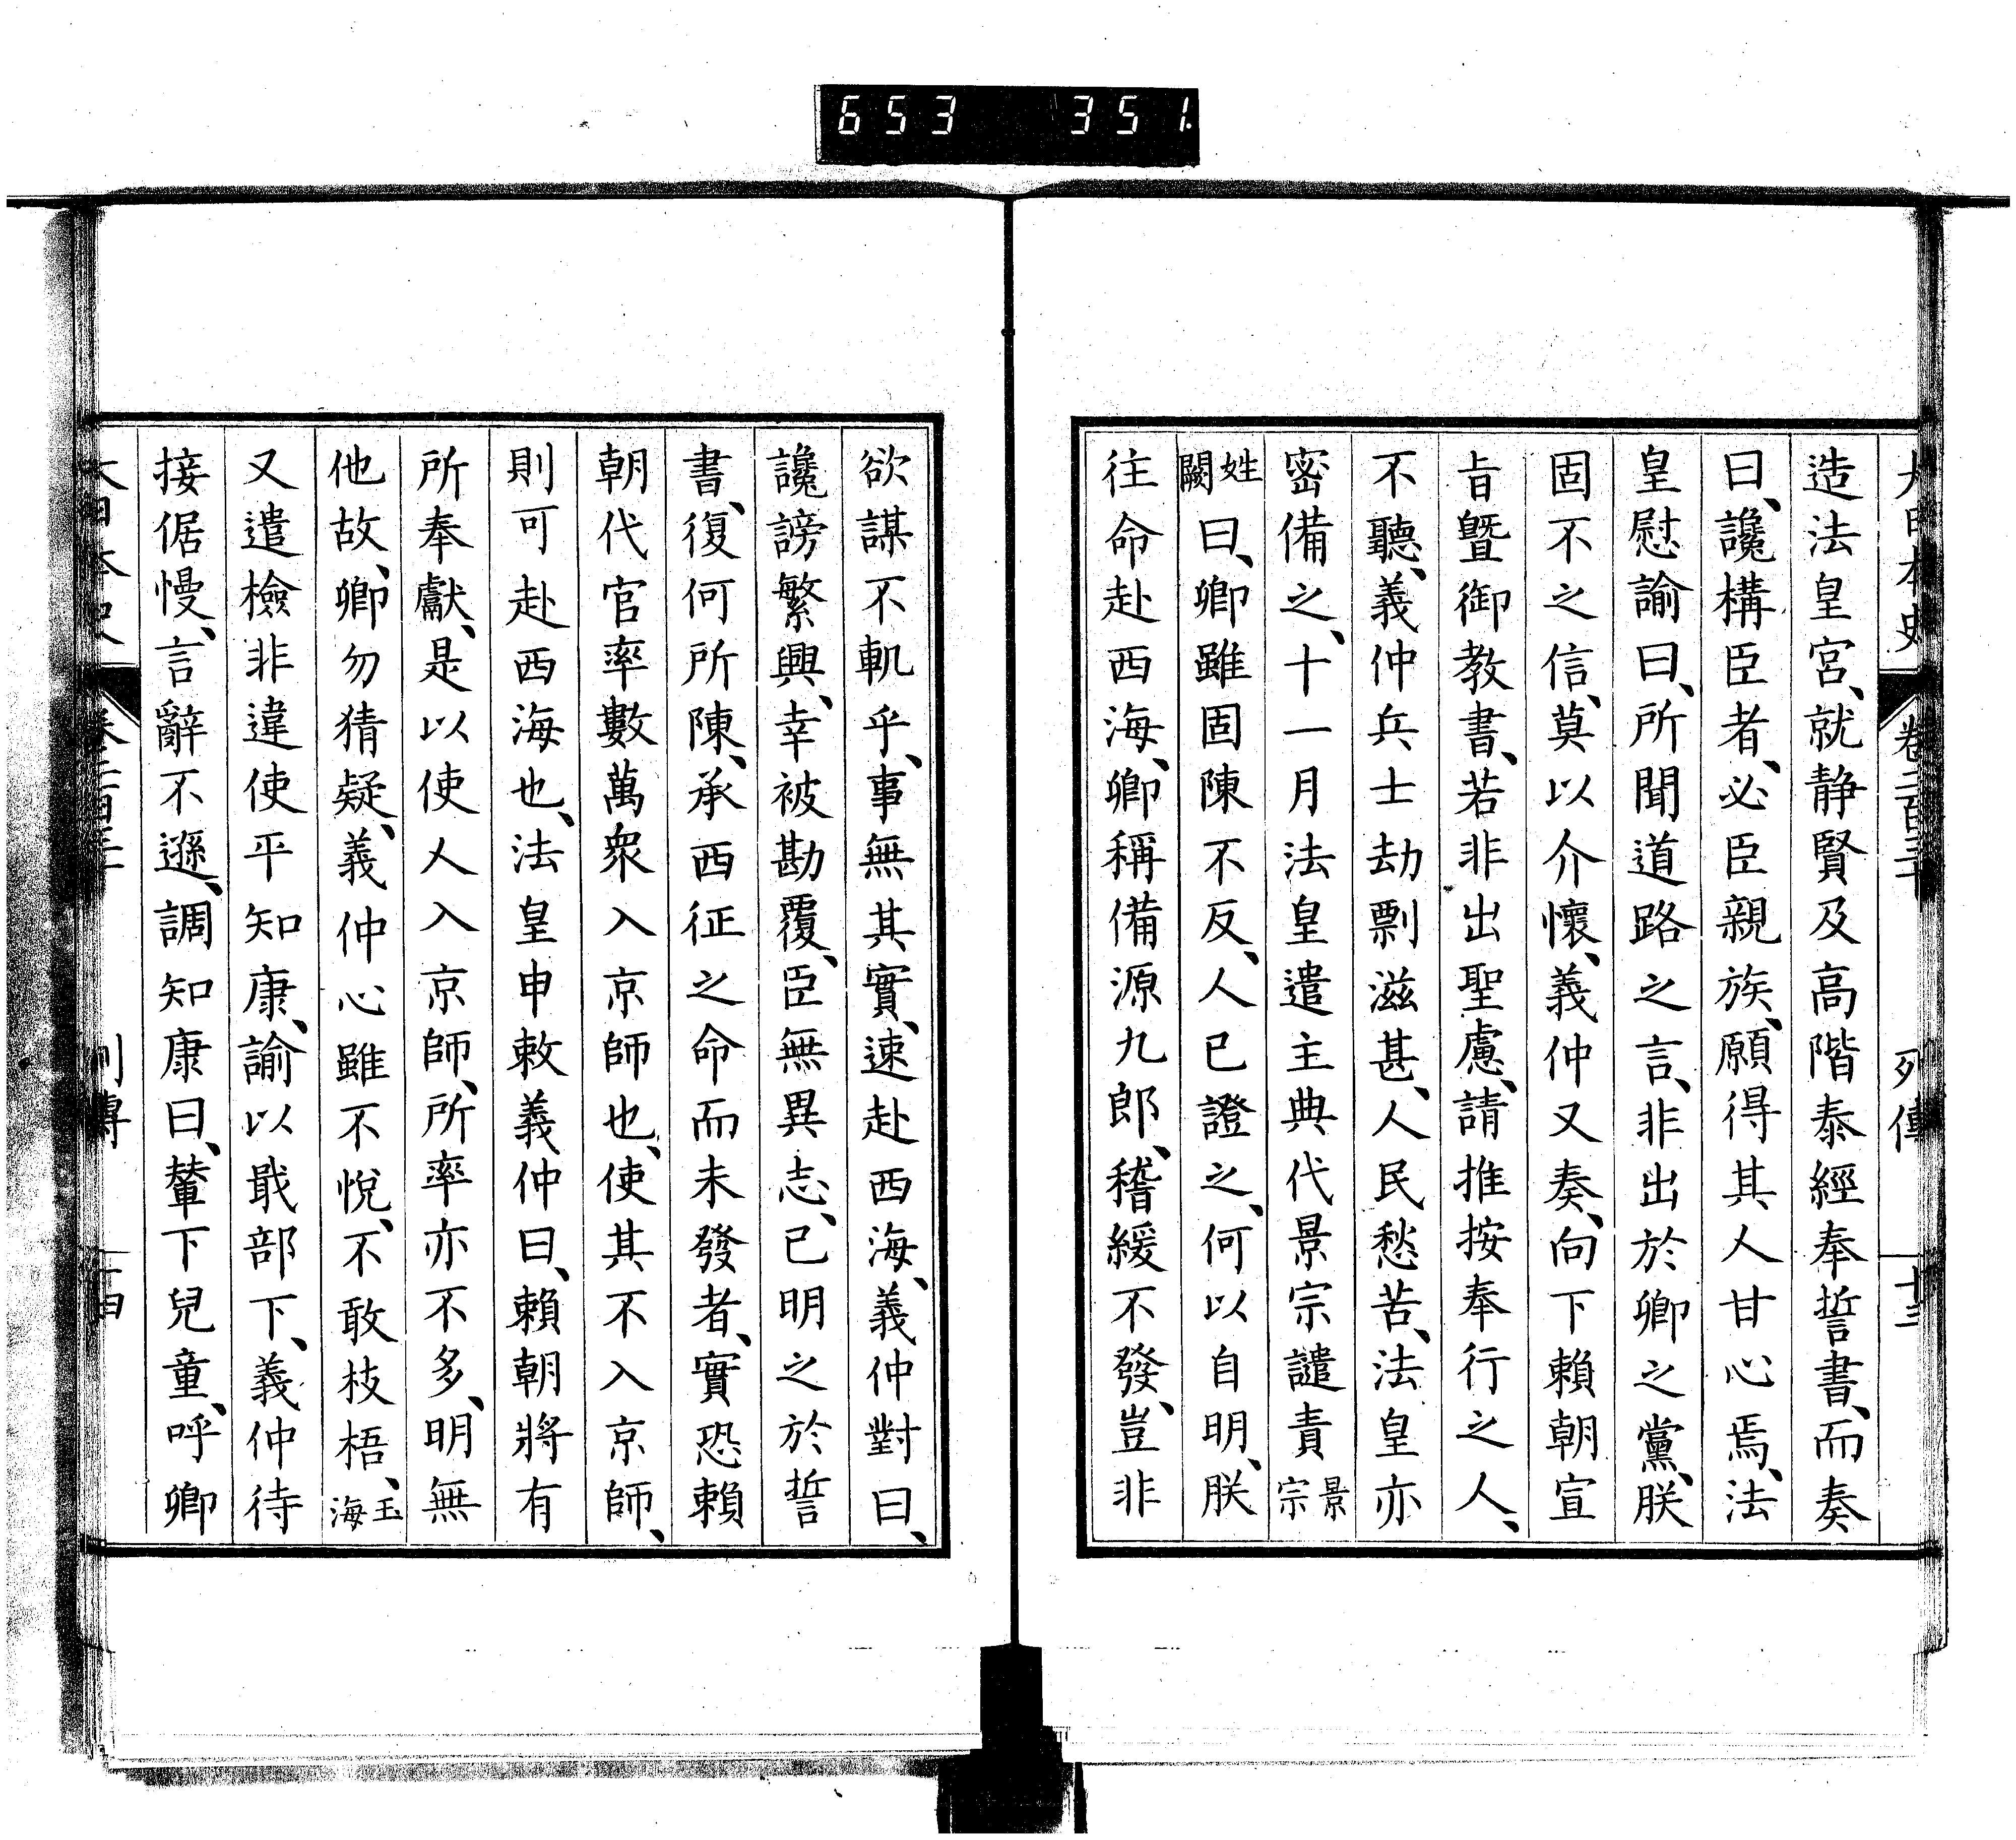 653 351.
大日本史 卷二百三十 列傳 十三
造法皇宮、就静賢及高階泰經奉誓書、而奏
曰、讒構臣者、必臣親族、願得其人甘心焉、法
皇慰諭曰、所聞道路之言、非出於卿之黨、朕
固不之信、莫以介懷、義仲又奏、向下賴朝宣
旨曁御教書、若非出聖慮、請推按奉行之人、
不聽、義仲兵士劫剽滋甚、人民愁苦、法皇亦
密備之、十一月法皇遣主典代景宗譴責景宗
姓闕曰、卿雖固陳不反、人已證之、何以自明、朕
往命赴西海、卿稱備源九郎、稽緩不發、豈非
欲謀不軌乎、事無其實、速赴西海、義仲對曰、
讒謗繁興、幸被勘覆、臣無異志、已明之於誓
書、復何所陳、承西征之命而未發者、實恐賴
朝代官率數萬衆入京師也、使其不入京師、
則可赴西海也、法皇申敕義仲曰、賴朝將有
所奉獻、是以使人入京師、所率亦不多、明無
他故、卿勿猜疑、義仲心雖不悅、不敢枝梧、玉海
又遣檢非違使平知康、諭以戢部下、義仲待
接倨慢、言辭不遜、謂知康曰、輦下兒童、呼卿
大日本史 列傳